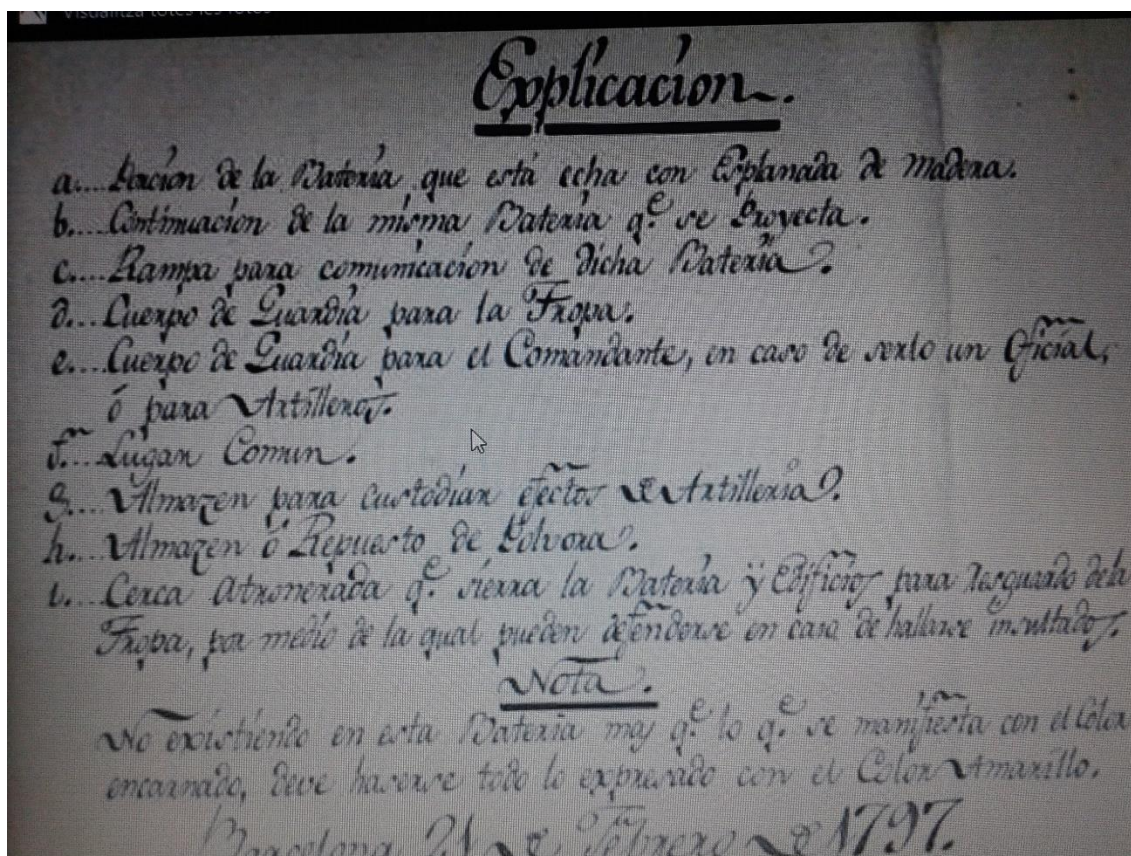 Visualitza totes les fotos
Explicacion.
a.... Porcion de la Bateria que está echa con Esplanada de madera.
b.... Continuacion de la misma Bateria q.e se Proyecta.
c.... Rampa para comunicacion de dicha Bateria.
d.... Cuerpo de Guardia para la Tropa.
e.... Cuerpo de Guardia para el Comandante, en caso de serlo un Oficial,
ó para Artilleros.
f.... Lugar Comun.
g.... Almazen para custodiar efectos de Artilleria.
h.... Almazen ó Repuesto de Polvora.
i.... Cerca Atronerada q.e sierra la Bateria ÿ Edificios para resguardo de la
Tropa, por medio de la qual pueden defenderse en caso de hallarse insultados.
Nota.
No existiendo en esta Bateria mas q.e lo q.e se manifiesta con el Color
encarnado, deve hacerse todo lo expresado con el Color Amarillo.
Barcelona 21 de Febrero de 1797.